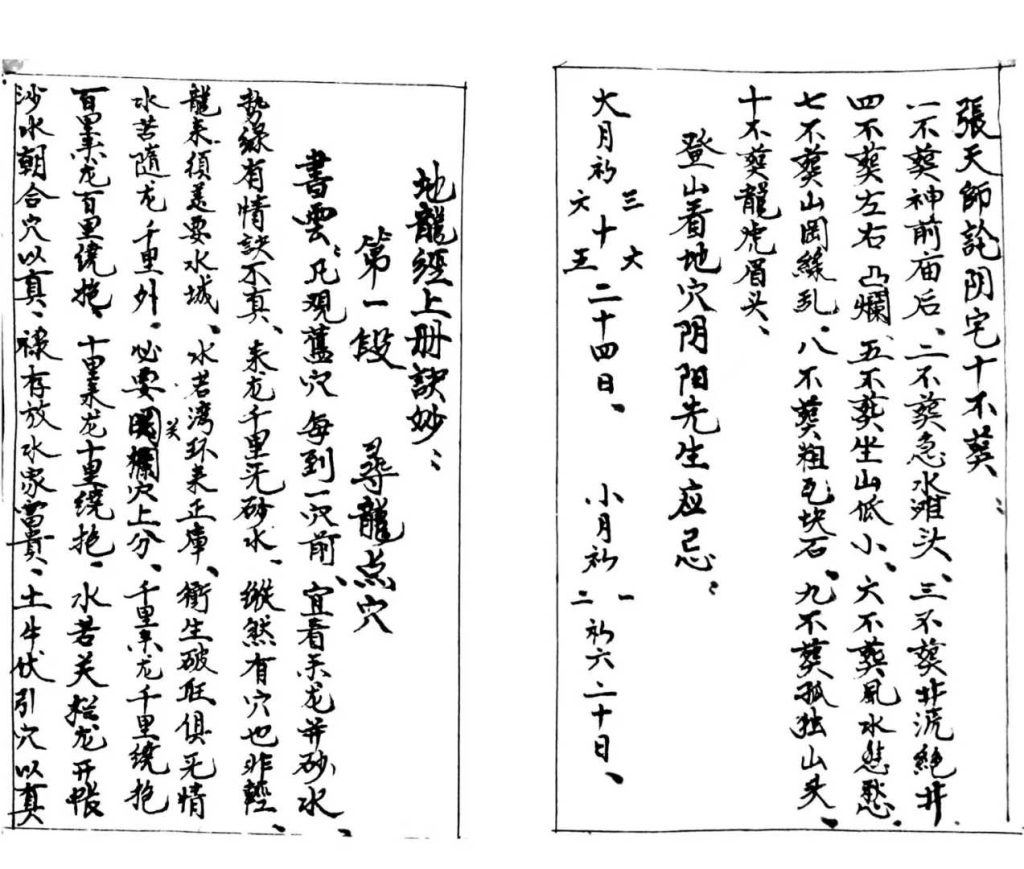 張天師訟阴宅十不葬：
一不葬神前庙后、二不葬急水滩头、三不葬井流絕井
四不葬左右凸爛、五不葬坐山低小、六不葬風水愁愁、
七不葬山岡繚乱、八不葬粗瓦块石、九不葬孤独山头、
十不葬龍虎眉头、
登山着地穴阴阳先生应忌：
大月初
三六
十
六五
二十四日、
小月初
一二
初六二十日、
地龍經上册訣妙：
第一段 尋龍点穴
書雲：凡观舊穴每到一穴前、宜看来龙并砂水、
勢緣有情訣不真、来龙千里无砂水、縱然有穴也非輕、
龍来須美要水城、水若湾环来正庫、衝生破旺俱无情
水若隨龙千里外、必要関攔穴上分、千里来龙千里绕抱
百里来龙百里绕抱、十里来龙十里绕抱、水若关拦龙开帳
沙水朝合穴以真、禄存放水家富貴、土牛伏引穴以真